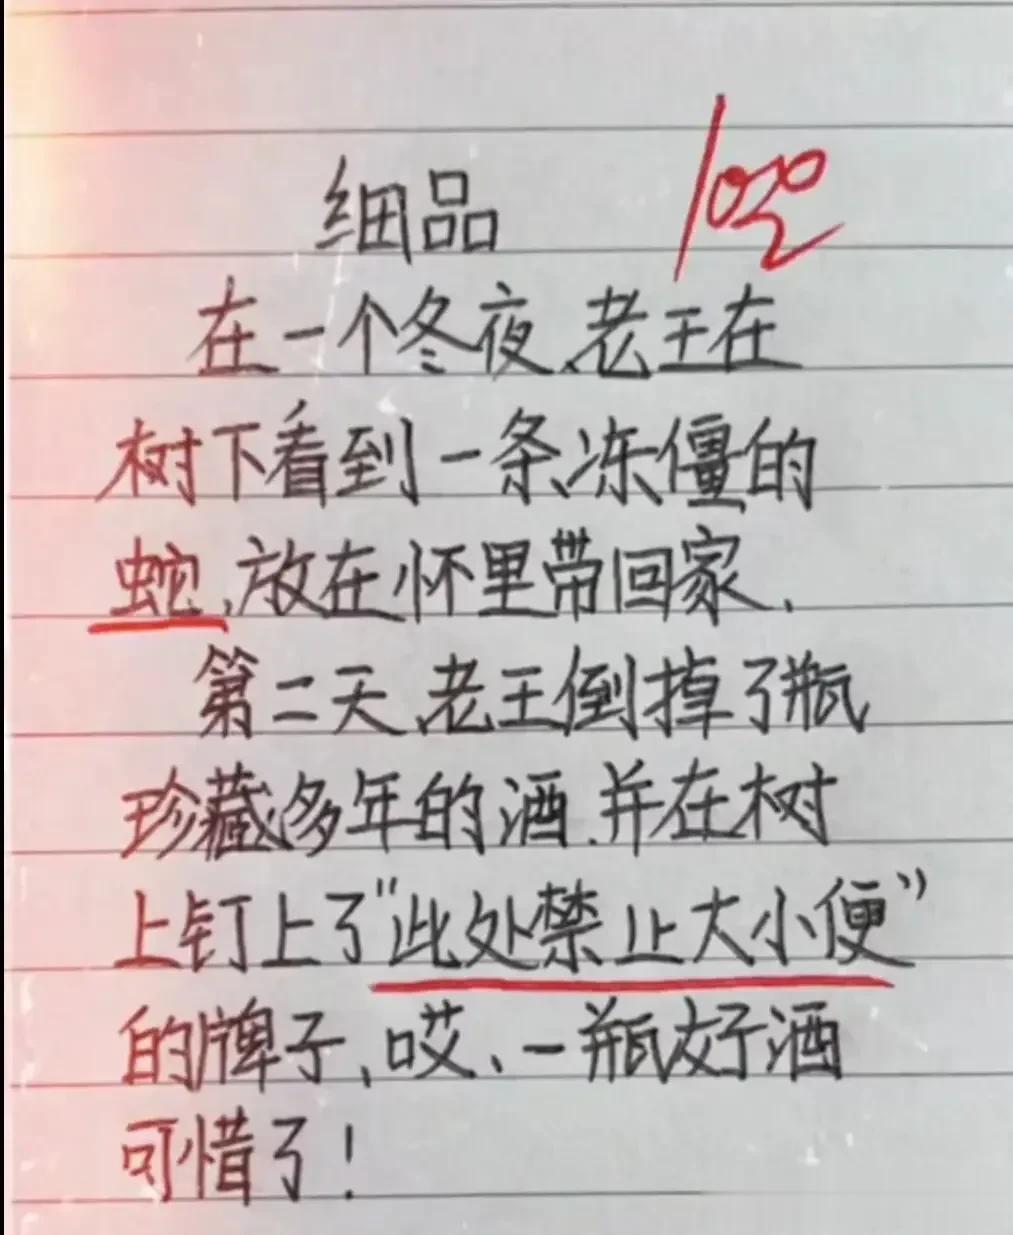 细品
100
在一个冬夜、老王在
树下看到一条冻僵的
蛇,放在怀里带回家.
第二天、老王倒掉了瓶
珍藏多年的酒.并在树
上钉上了“此处禁止大小便”
的牌子、哎、一瓶好酒
可惜了!